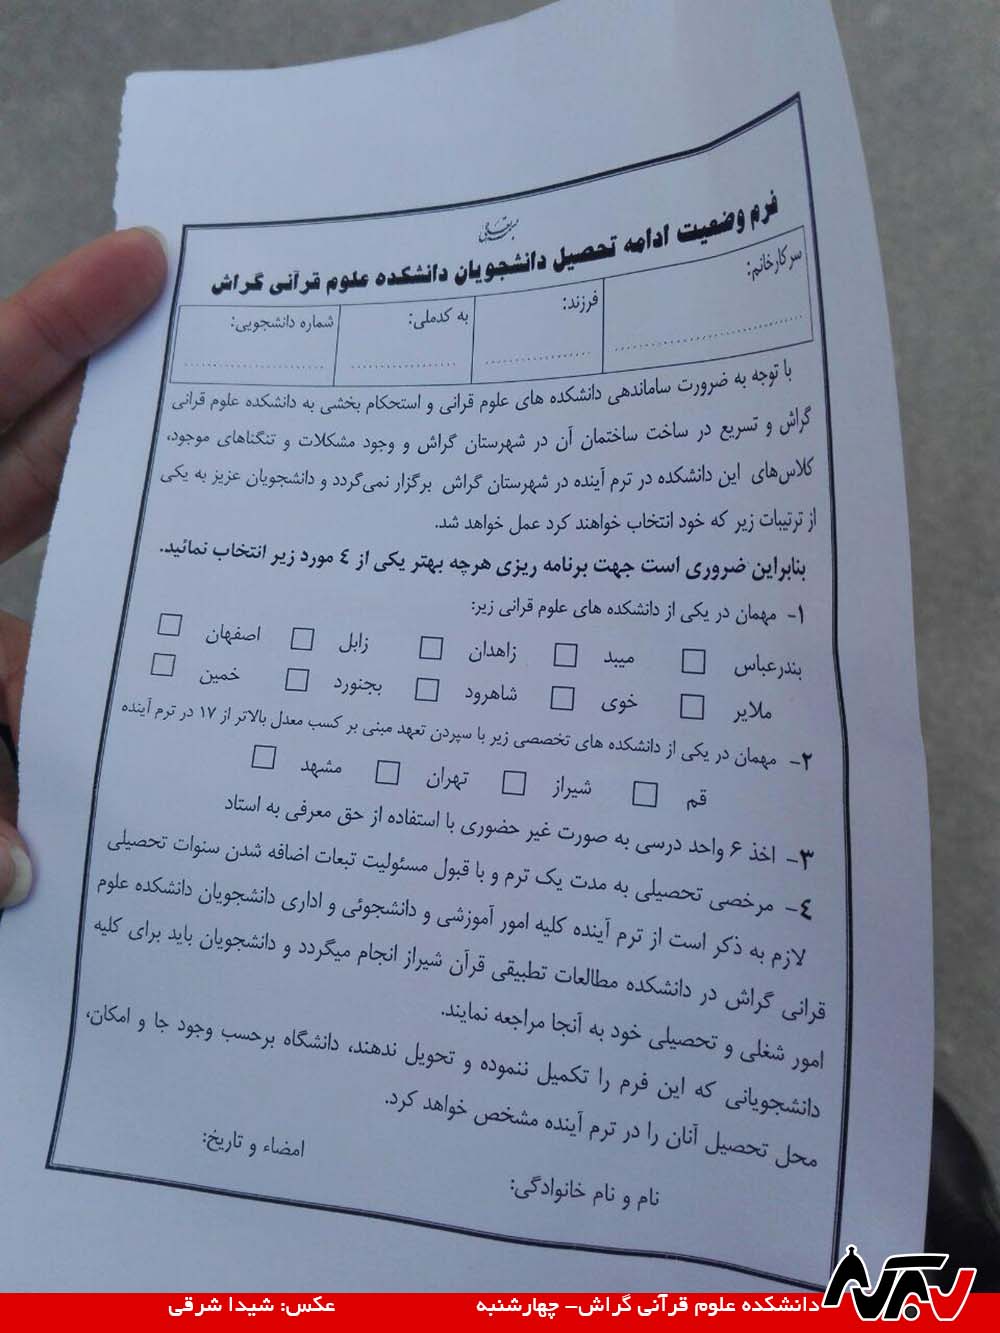 بسمه تعالی
فرم وضعیت ادامه تحصیل دانشجویان دانشکده علوم قرآنی گراش
سرکارخانم: فرزند: به کدملی: شماره دانشجویی:
با توجه به ضرورت ساماندهی دانشکده های علوم قرانی و استحکام بخشی به دانشکده علوم قرانی
گراش و تسریع در ساخت ساختمان آن در شهرستان گراش و وجود مشکلات و تنگناهای موجود،
کلاس‌های این دانشکده در ترم آینده در شهرستان گراش برگزار نمی‌گردد و دانشجویان عزیز به یکی
از ترتیبات زیر که خود انتخاب خواهند کرد عمل خواهد شد.
بنابراین ضروری است جهت برنامه ریزی هرچه بهتر یکی از ٤ مورد زیر انتخاب نمائید.
۱- مهمان در یکی از دانشکده های علوم قرانی زیر:
بندرعباس □ میبد □ زاهدان □ زابل □ اصفهان □
ملایر □ خوی □ شاهرود □ بجنورد □ خمین □
۲- مهمان در یکی از دانشکده های تخصصی زیر با سپردن تعهد مبنی بر کسب معدل بالاتر از ۱۷ در ترم آینده
قم □ شیراز □ تهران □ مشهد □
۳- اخذ ۶ واحد درسی به صورت غیر حضوری با استفاده از حق معرفی به استاد
٤- مرخصی تحصیلی به مدت یک ترم و با قبول مسئولیت تبعات اضافه شدن سنوات تحصیلی
لازم به ذکر است از ترم آینده کلیه امور آموزشی و دانشجوئی و اداری دانشجویان دانشکده علوم
قرانی گراش در دانشکده مطالعات تطبیقی قرآن شیراز انجام میگردد و دانشجویان باید برای کلیه
امور شغلی و تحصیلی خود به آنجا مراجعه نمایند.
دانشجویانی که این فرم را تکمیل ننموده و تحویل ندهند، دانشگاه برحسب وجود جا و امکان،
محل تحصیل آنان را در ترم آینده مشخص خواهد کرد.
نام و نام خانوادگی: امضاء و تاریخ:
دانشکده علوم قرآنی گراش- چهارشنبه عکس: شیدا شرقی